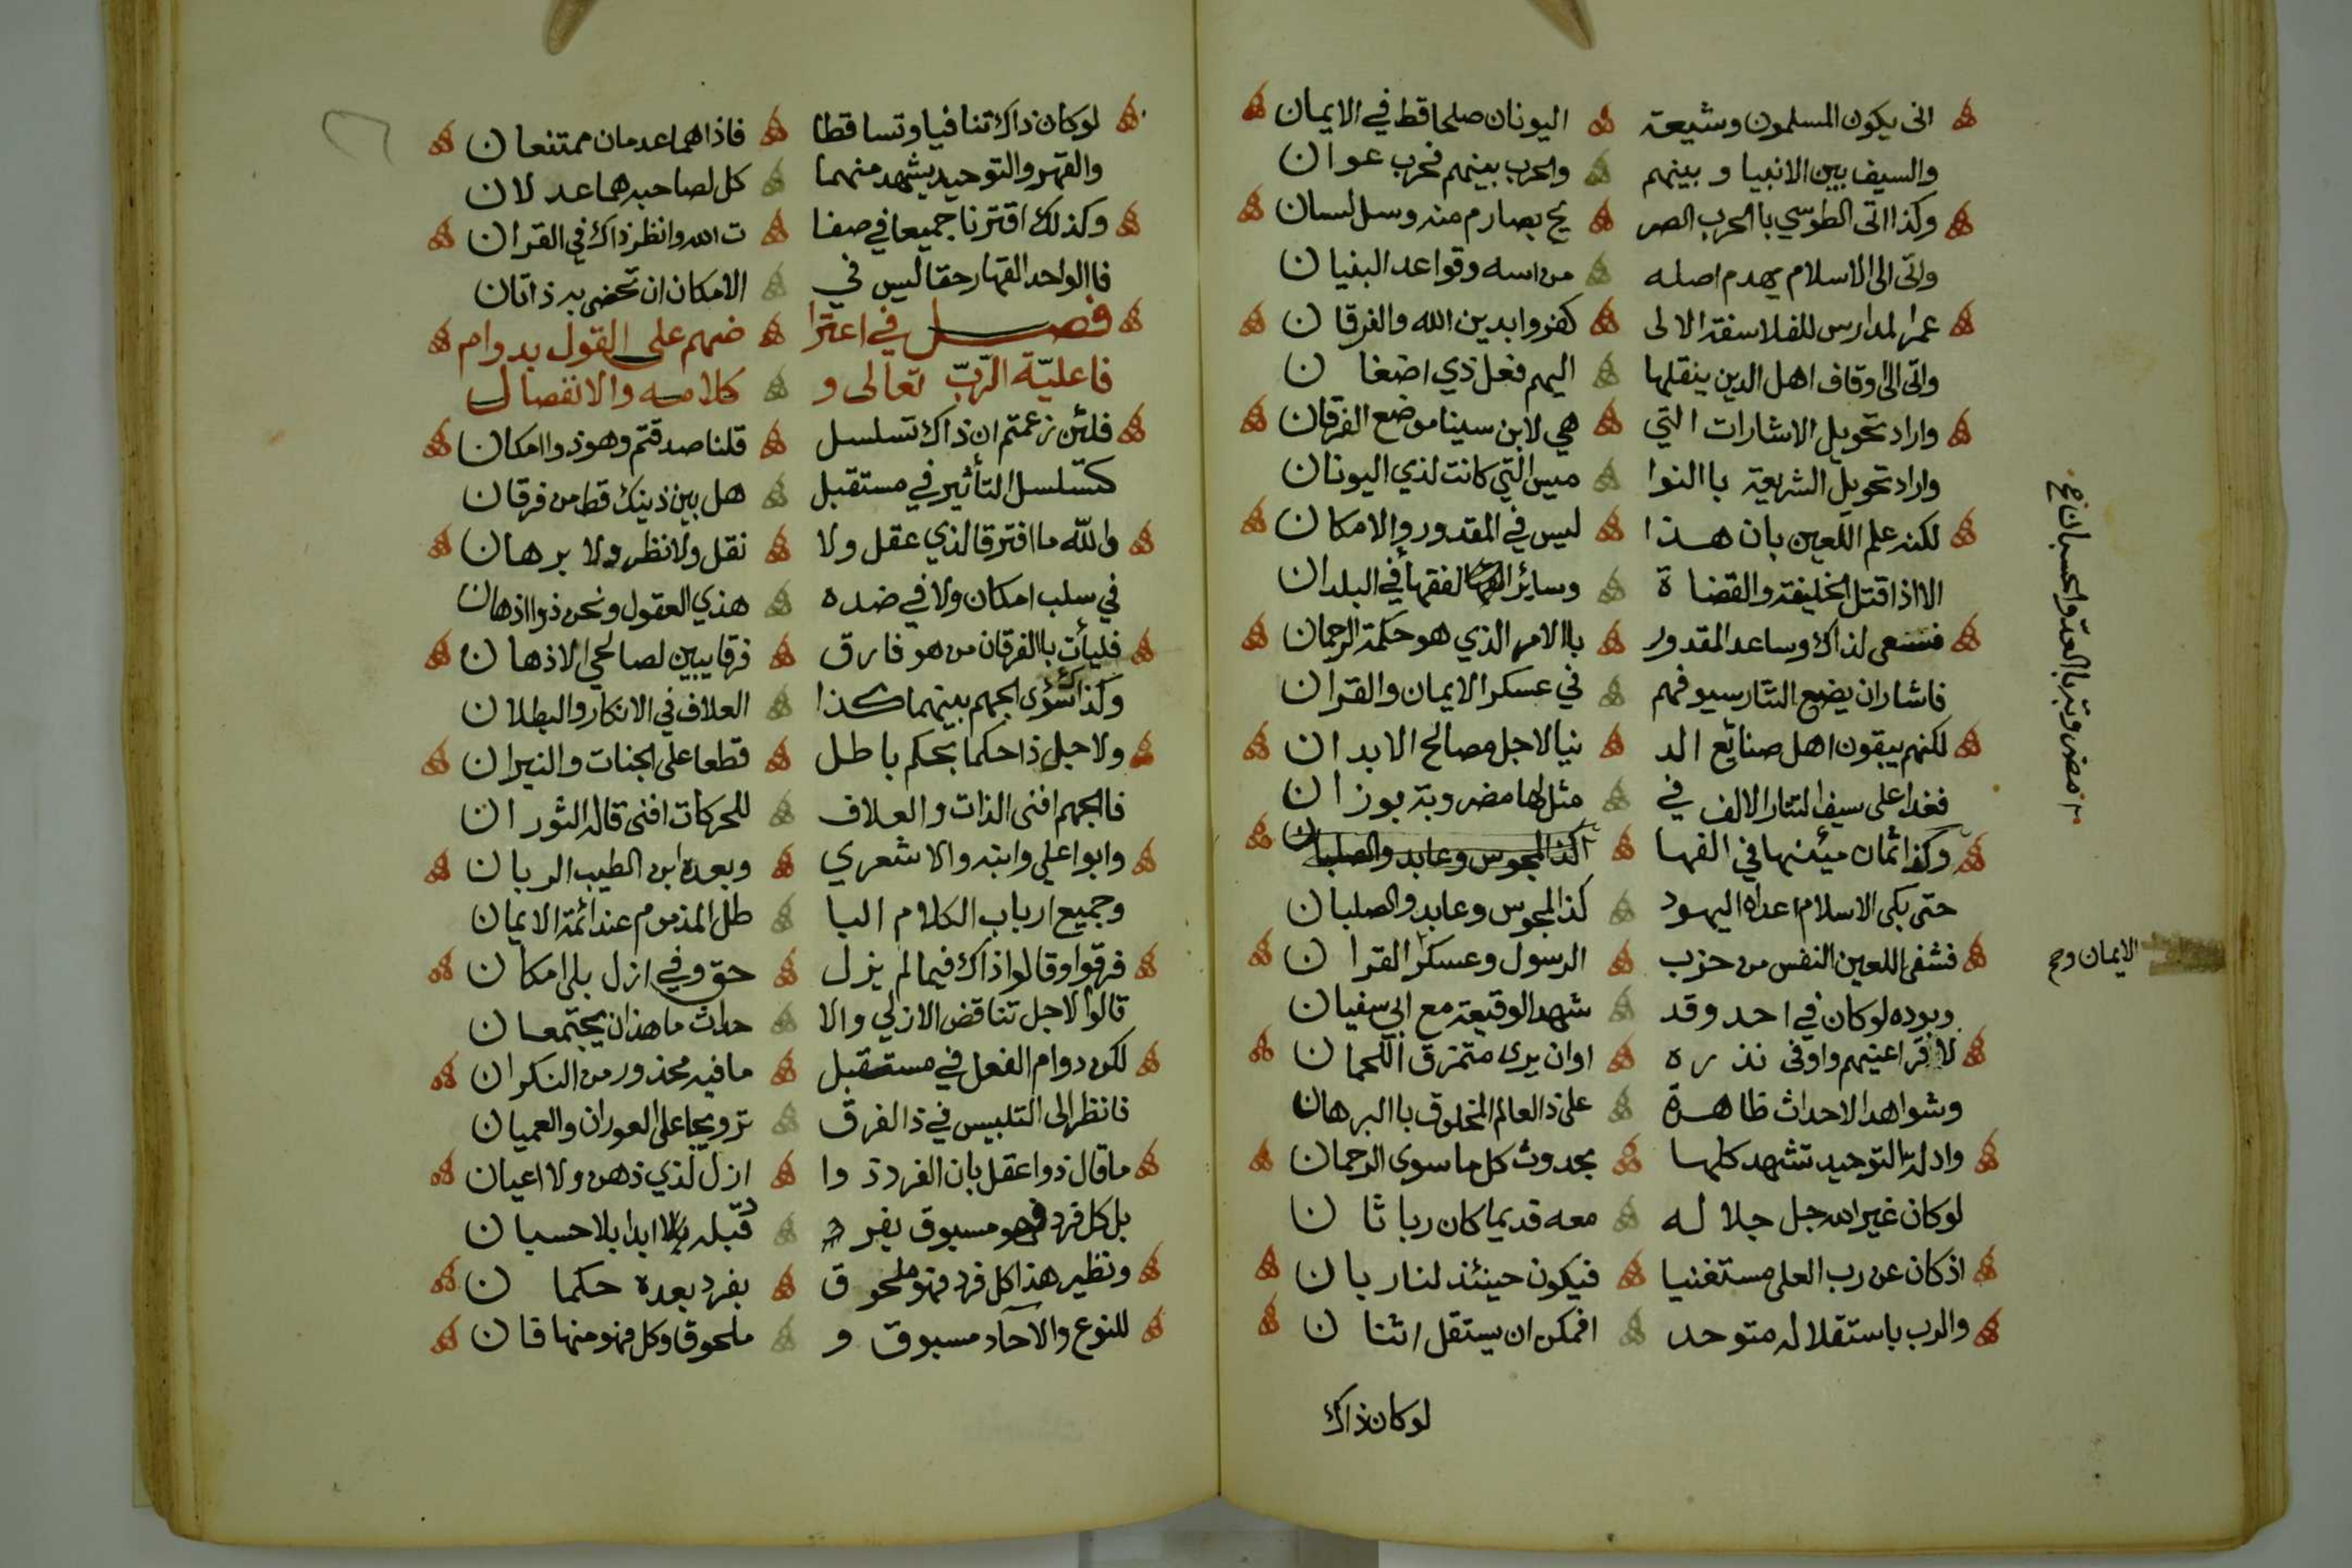 انى يكون المسلمون وشيعة اليونان صلحا قط في الايمان
والسيف بين الانبيا وبينهم والحرب بينهم فحرب عوان
وكذا اتى الطوسي باالحرب الصر يح بصارم منه وسل لسان
واتى الى الاسلام يهدم اصله من اسه وقواعد البنيان
عمر المدارس للفلاسفة الالى كفروا بدين الله والفرقان
واتى الى اوقاف اهل الدين ينقلها اليهم فعل ذي اضغان
واراد تحويل الاشارات التي هي لابن سينا موضع الفرقان
واراد تحويل الشريعة باالنوا ميس التي كانت لذي اليونان
لكنه علم اللعين بان هذا ليس في المقدور والامكان
الا اذا قتل الخليفة والقضاة وسائر الفقهأ في البلدان
فسعى لذاك وساعد المقدور باالامر الذي هو حكمة الرحمان
فاشار ان يضع التتار سيوفهم في عسكر الايمان والقران
لكنهم يبقون اهل صنائع الد نيا لاجل مصالح الابدان
فغدا على سيف التتار الالف في مثل لها مضروبة بوزان
وكذا ثمان مئينها في الفها اكذا المجوس وعابد والصلبان
حتى بكى الاسلام اعداه اليهود كذا المجوس وعابد والصلبان
فشفى اللعين النفس من حزب الرسول وعسكر القران
وبوده لوكان في احد وقد شهد الوقيعة مع ابي سفيان
لاقر اعينهم واوفى نذره اوان يرى متمزق اللحمان
وشواهد الاحداث ظاهرة على ذ العالم المخلوق باالبرهان
وادلة التوحيد تشهد كلها بحدوث كل ما سوى الرحمان
لوكان غير الله جل جلاله معه قديما كان ربا ثان
اذ كان عن رب العلى مستغنيا فيكون حينئذ لنا ربان
والرب باستقلاله متوحد افمكن ان يستقل اثنان
لوكان ذاك
مضروبة باالعد والحسبان صح
الايمان وصح
لوكان ذاك تنافيا وتساقطا فاذا هما عدمان ممتنعان
والقهر والتوحيد يشهد منهما كل لصاحبه هما عدلان
وكذلك اقترنا جميعا في صفا ت الله وانظر ذاك في القران
فاالواحد القهار حقا ليس في الامكان ان تحضى به ذاتان
فصل في اعترا ضهم على القول بدوام
فاعليّة الرّبّ تعالى و كلامه والانفصال
فلئن زعمتم ان ذاك تسلسل قلنا صدقتم وهو ذو امكان
كتسلسل التأثير في مستقبل هل بين ذينك قط من فرقان
والله ما افترقا لذي عقل ولا نقل ولا نظر ولا برهان
في سلب امكان ولا في ضده هذي العقول ونحن ذوا اذهان
فليأت باالفرقان من هو فارق فرقا يبين لصالحي الاذهان
وكذاك سوى الجهم بينهما كذا العلاف في الانكار والبطلان
ولاجل ذا حكما بحكم باطل قطعا على الجنات والنيران
فاالجهم افنى الذات والعلاف للحركات افنى قاله الثوران
وابوا علي وابنه والاشعري وبعده ابن الطيب الربان
وجميع ارباب الكلام البا طل المذموم عند ائمة الايمان
فرقوا وقالوا ذاك فيما لم يزل حق وفي ازل بلى امكان
قالوا لاجل تناقض الازلي والا حداث ما هذان يجتمعان
لكن دوام الفعل في مستقبل ما فيه محذور من النكران
فانظر الى التلبيس في ذ الفرق ترويجا على العوران والعميان
ما قال ذوا عقل بان الفرد ذوا ازل لذي ذهن ولا اعيان
بل كل فرد فهو مسبوق بفرد قبله ابدا بلا حسبان
ونظير هذا كل فرد فهو ملحوق بفرد بعده حكمان
للنوع والآحاد مسبوق و ملحوق وكل فهو منها فان